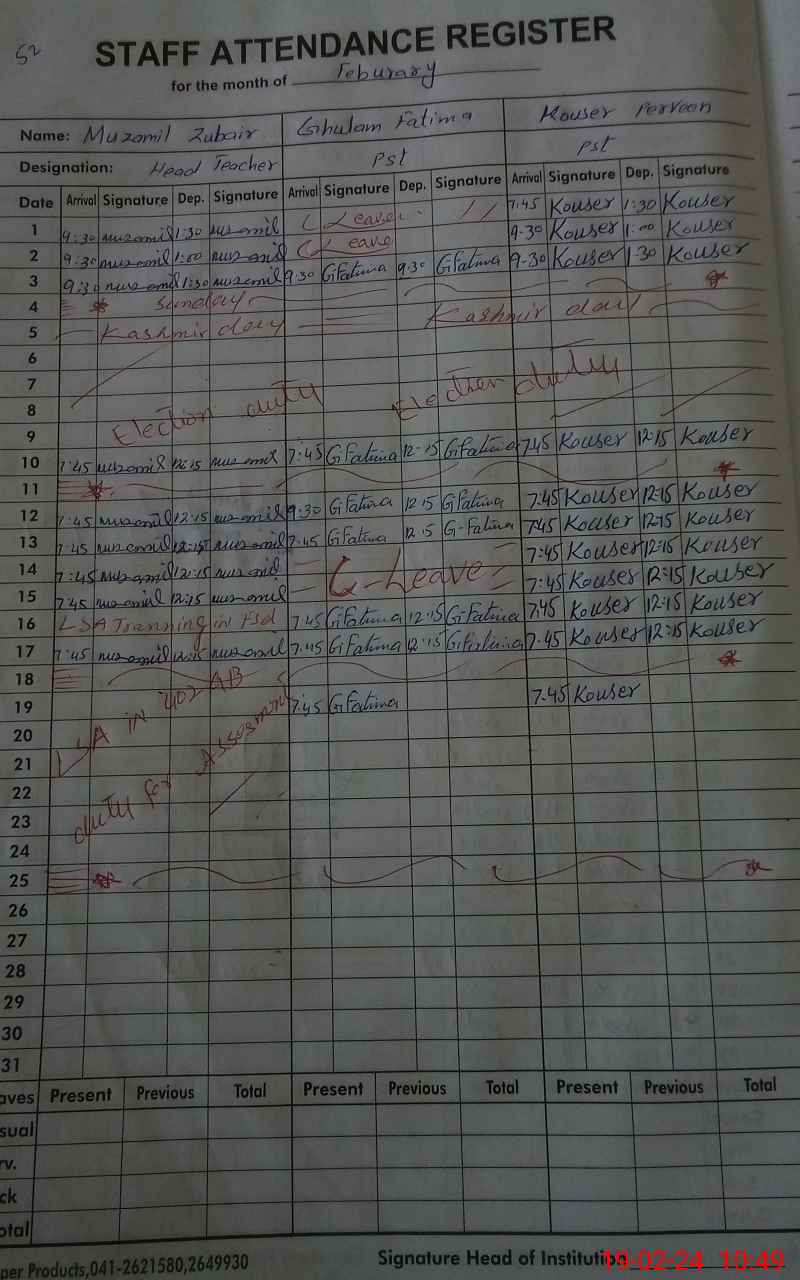 52
STAFF ATTENDANCE REGISTER
for the month of Feburary
Name: Muzamil Zubair Ghulam Fatima Kouser Perveen
Designation: Head Teacher Pst Pst
Date Arrival Signature Dep. Signature Arrival Signature Dep. Signature Arrival Signature Dep. Signature
1 9:30 muzamil 1:30 muzamil C Leave 7:45 Kouser 1:30 Kouser
2 9:30 muzamil 1:00 muzamil C Leave 9-30 Kouser 1:00 Kouser
3 9:30 muzamil 1:30 muzamil 9:30 GFatima 9:30 GFatima 9-30 Kouser 1:30 Kouser
4 Sunday
5 Kashmir day Kashmir day
6
7
8 Election duty Election duty
9
10 7:45 muzamil 12:15 muzamil 7:45 GFatima 12:15 GFatima 7.45 Kouser 12:15 Kouser
11
12 7:45 muzamil 12:15 muzamil 9:30 GFatima 12:15 GFatima 7.45 Kouser 12:15 Kouser
13 7:45 muzamil 12:15 muzamil 7:45 GFatima 12.15 G-Fatima 7:45 Kouser 12:15 Kouser
14 7:45 muzamil 12:15 muzamil C-Leave 7:45 Kouser 12:15 Kouser
15 7:45 muzamil 12:15 muzamil 7:45 Kouser 12:15 Kouser
16 LSA Tranning in Fsd 7.45 GFatima 12:15 GFatima 7.45 Kouser 12:15 Kouser
17 7:45 muzamil 12:15 muzamil 7:45 GFatima 12:15 GFatima 7.45 Kouser 12:15 Kouser
18
19 7:45 GFatima 7.45 Kouser
20 LSA in 402 AB
21
22 duty for Assesment
23
24
25
26
27
28
29
30
31
aves Present Previous Total Present Previous Total Present Previous Total
sual
rv.
ck
otal
per Products,041-2621580,2649930 Signature Head of Institution
19-02-24 10:49